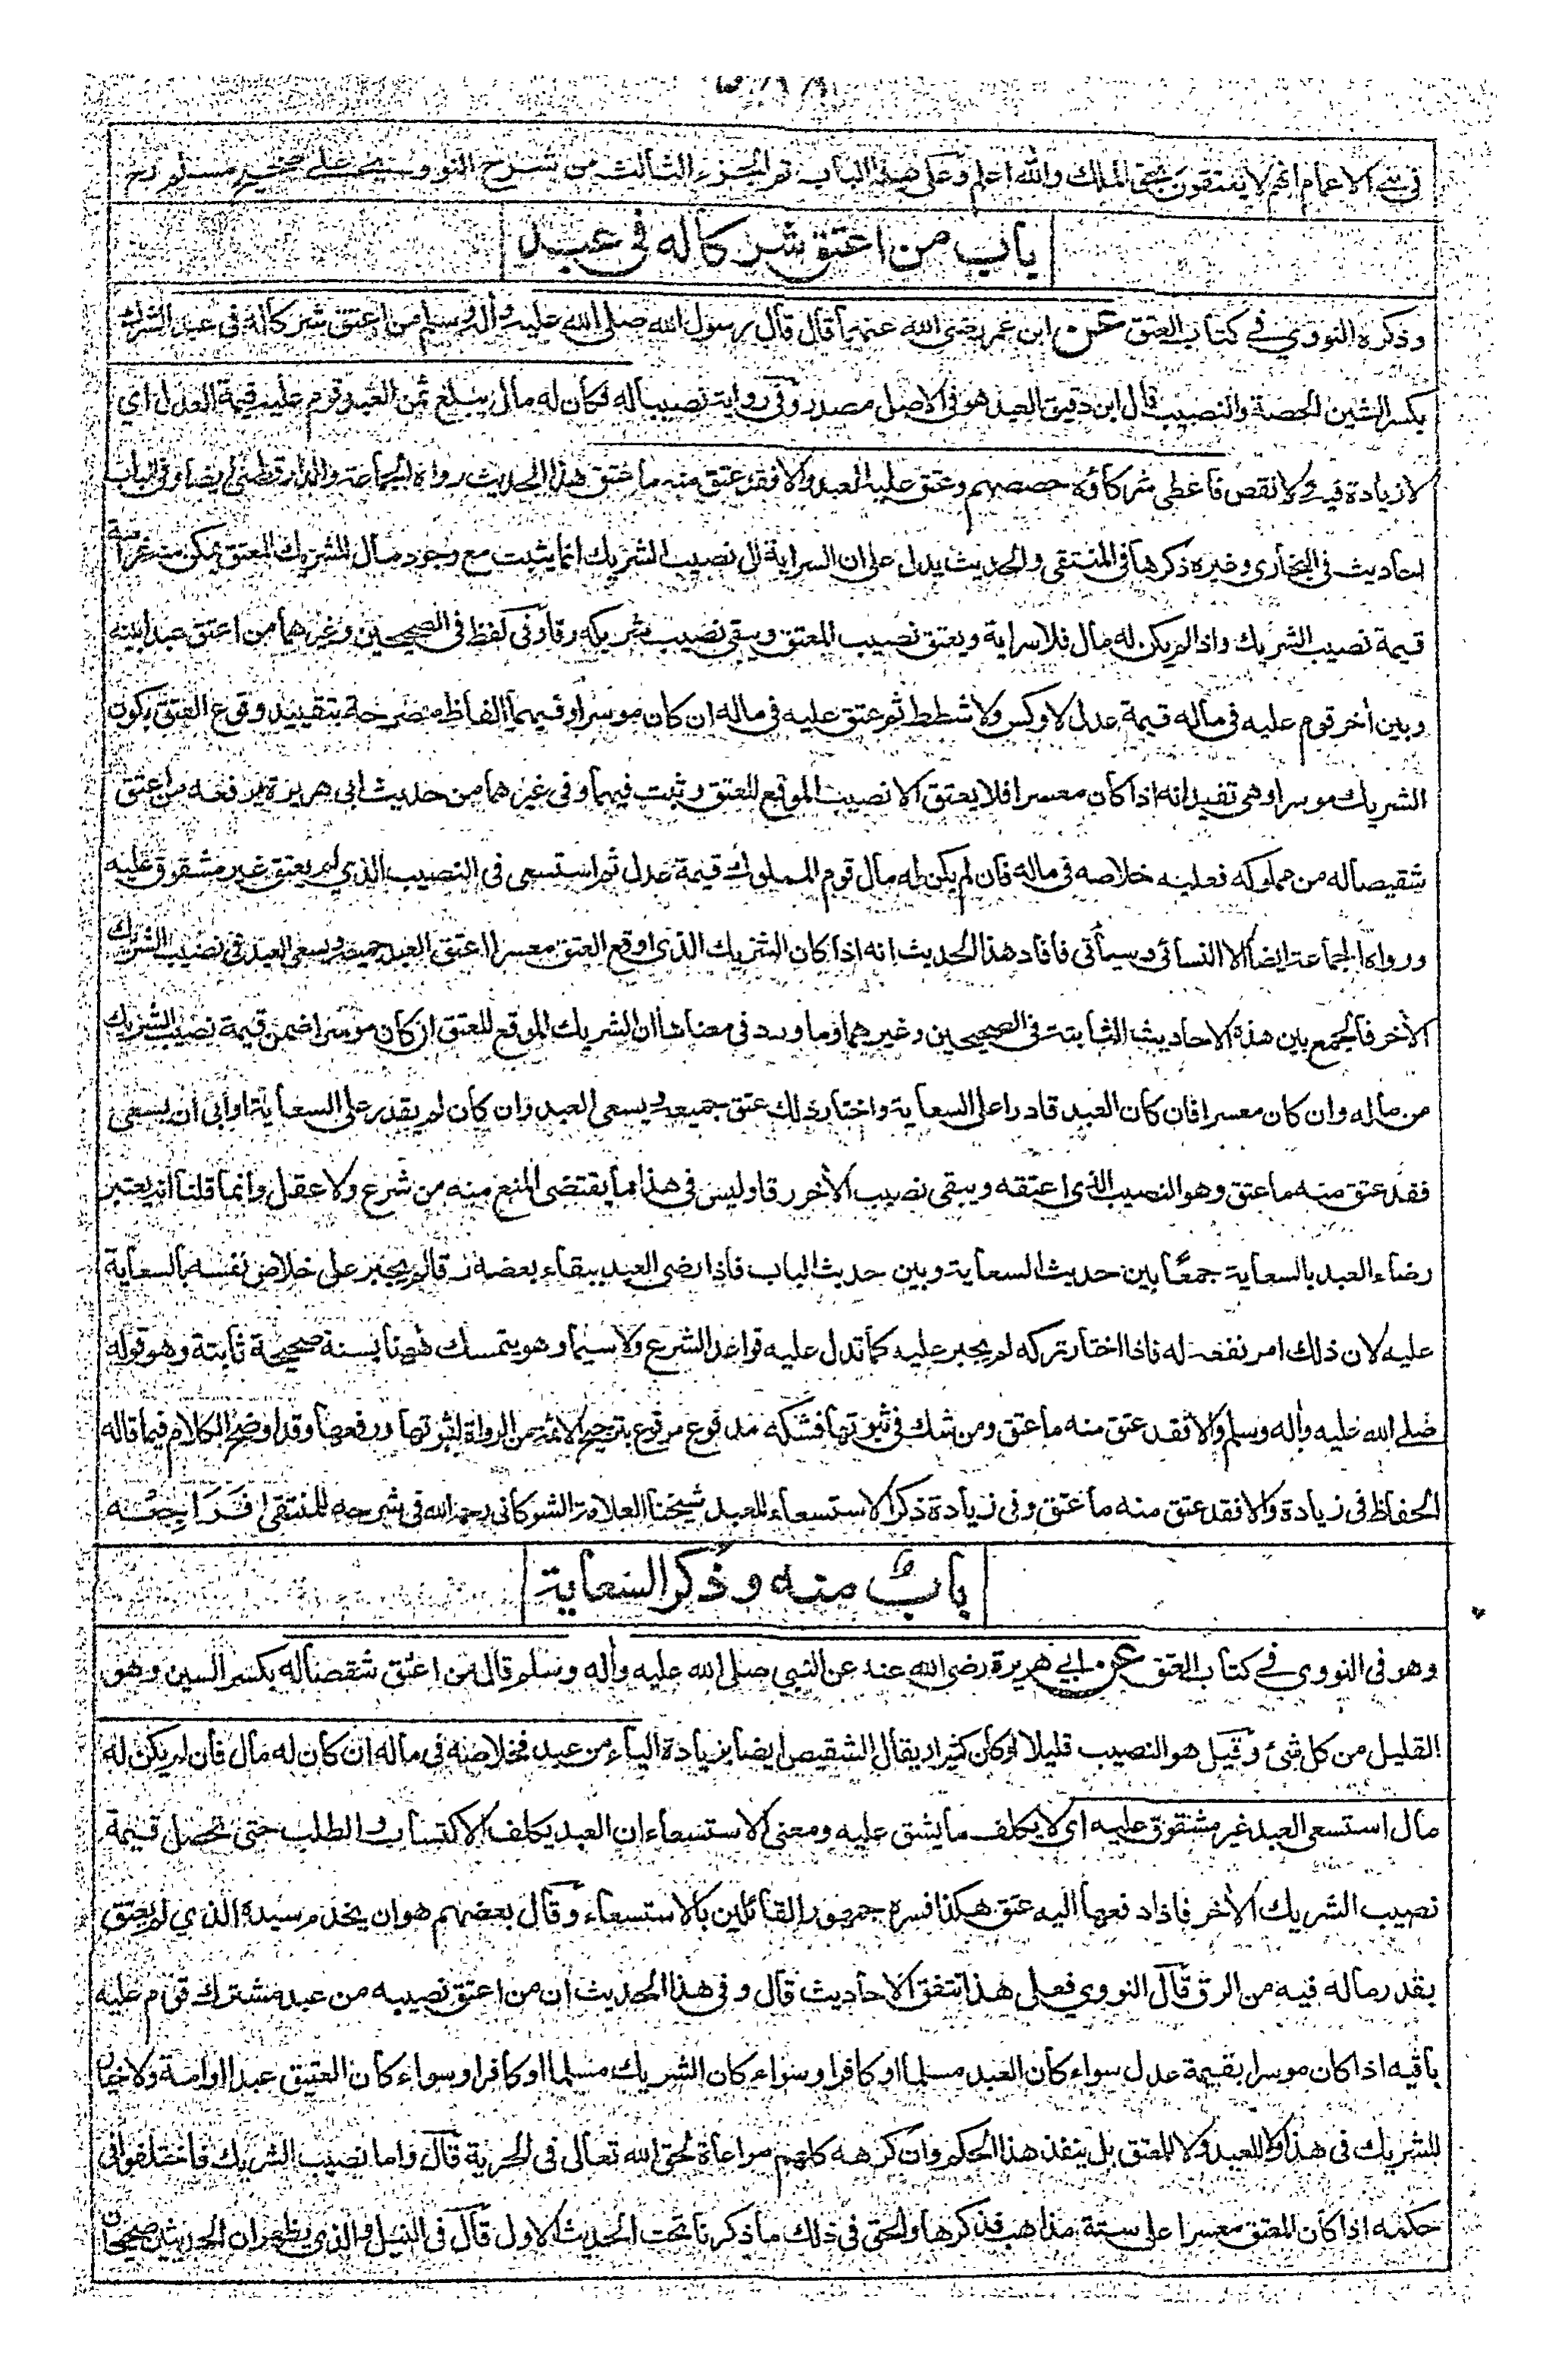 في بني الاعمام انهم لا يعتقون بحق الملك والله اعلم وعلى هذا الباب تم الجزء الثالث من شرح النووي على صحيح مسلم
باب من اعتق شركا له في عبد
وذكره النووي في كتاب العتق عن ابن عمر رضي الله عنهما قال قال رسول الله صلى الله عليه وأله وسلم من اعتق شركا له في عبد الشرك
بكسر الشين الحصة والنصيب قال ابن دقيق العيد هو في الاصل مصدر وفي رواية نصيبا له فكان له مال يبلغ ثمن العبد قوم عليه قيمة العدل اي
لا زيادة فيه ولا نقص فأعطى شركاؤه حصصهم وعتق عليه العبد والا فقد عتق منه ما عتق هذا الحديث رواه الجماعة والدارقطني ايضا وفي الباب
احاديث في البخاري وغيره ذكرها في المنتقى والحديث يدل على ان السراية الى نصيب الشريك انما يثبت مع وجود مال للشريك المعتق يمكن منه غرامة
قيمة نصيب الشريك واذا لم يكن له مال فلا سراية ويعتق نصيب المعتق ويبقى نصيب شريكه رقا وفي لفظ في الصحيحين وغيرهما من اعتق عبدا بينه
وبين أخر قوم عليه في ماله قيمة عدل لا وكس ولا شطط ثم عتق عليه في ماله ان كان موسرا وفيهما الفاظ مصرحة بتقييد وقوع العتق بكون
الشريك موسرا وهي تفيد انه اذا كان معسرا فلا يعتق الا نصيب الموقع للعتق وثبت فيهما وفي غيرهما من حديث ابي هريرة يرفعه من اعتق
شقيصا له من مملوكه فعليه خلاصه في ماله فان لم يكن له مال قوم المملوك قيمة عدل ثم استسعى في النصيب الذي لم يعتق غير مشقوق عليه
ورواه الجماعة ايضا الا النسائي وسيأتي فأفاد هذا الحديث انه اذا كان الشريك الذي اوقع العتق معسرا اعتق العبد جميعه ويسعى العبد في نصيب الشريك
الأخر فالجمع بين هذه الاحاديث الثابتة في الصحيحين وغيرهما وما ورد في معناها ان الشريك الموقع للعتق ان كان موسرا ضمن قيمة نصيب الشريك
من ماله وان كان معسرا فان كان العبد قادرا على السعاية واختار ذلك عتق جميعه ويسعى العبد وان كان لم يقدر على السعاية او ابى ان يسعى
فقد عتق منه ما عتق وهو النصيب الذي اعتقه ويبقى نصيب الأخر رقا وليس في هذا ما يقتضي المنع منه من شرع ولا عقل وانما قلنا انه يعتبر
رضاء العبد بالسعاية جمعا بين حديث السعاية وبين حديث الباب فاذا رضي العبد ببقاء بعضه رقا لم يجبر على خلاص نفسه بالسعاية
عليه لان ذلك امر نفعه له فاذا اختار تركه لم يجبر عليه كما تدل عليه قواعد الشرع ولا سيما وهو يتمسك ههنا بسنة صحيحة ثابتة وهو قوله
صلى الله عليه وأله وسلم والا فقد عتق منه ما عتق ومن شك في ثبوتها فشكه مدفوع مرفوع بترجيح الائمة من الرواة لثبوتها ورفعها وقد اوضح الكلام فيما قاله
الحفاظ في زيادة والا فقد عتق منه ما عتق وفي زيادة ذكر الاستسعاء للعبد شيخنا العلامة الشوكاني رحمه الله في شرحه للمنتقى فراجعه
باب منه وذكر السعاية
وهو في النووي في كتاب العتق عن ابي هريرة رضي الله عنه عن النبي صلى الله عليه وأله وسلم قال من اعتق شقصا له بكسر السين وهو
القليل من كل شئ وقيل هو النصيب قليلا او كان كثيرا ويقال الشقيص ايضا بزيادة الياء من عبد فخلاصه في ماله ان كان له مال فان لم يكن له
مال استسعى العبد غير مشقوق عليه اي لا يكلف ما يشق عليه ومعنى الاستسعاء ان العبد يكلف الاكتساب والطلب حتى تحصل قيمة
نصيب الشريك الأخر فاذا دفعها اليه عتق هكذا فسره جمهور القائلين بالاستسعاء وقال بعضهم هو ان يخدم سيده الذي لم يعتق
بقدر ما له فيه من الرق قال النووي فعلى هذا تتفق الاحاديث قال وفي هذا الحديث ان من اعتق نصيبه من عبد مشترك قوم عليه
باقيه اذا كان موسرا بقيمة عدل سواء كان العبد مسلما او كافرا وسواء كان الشريك مسلما او كافرا وسواء كان العتيق عبدا او امة ولا خيار
للشريك في هذا ولا للعبد ولا للمعتق بل ينفذ هذا الحكم وان كرهه كلهم مراعاة لحق الله تعالى في الحرية قال واما نصيب الشريك فاختلفوا في
حكمه اذا كان المعتق معسرا على ستة مذاهب فذكرها والحق في ذلك ما ذكرنا تحت الحديث الاول قال في النيل والذي يظهر ان الحديثين صحيحان